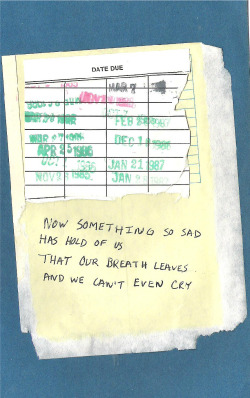 DATE DUE
MAR 2
NOV
FEB 2 1987
MAR DEC 1
APR 25 1986
OCT JAN 21 1987
NOV 2 1985 JAN
NOW SOMETHING SO SAD
HAS HOLD OF US
THAT OUR BREATH LEAVES
AND WE CAN'T EVEN CRY